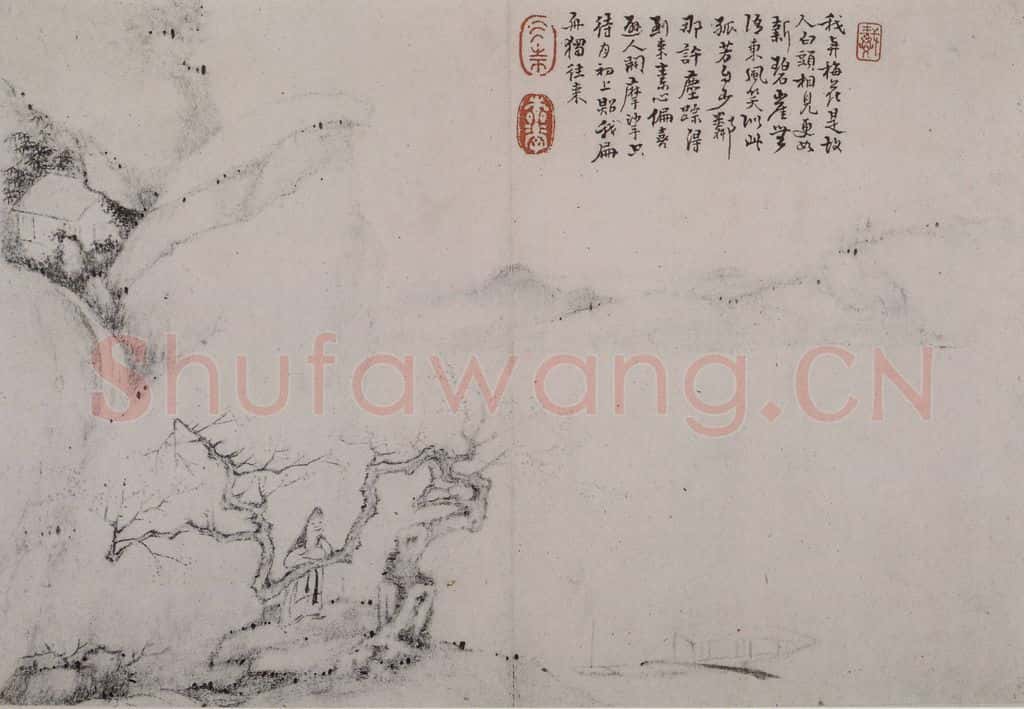 我與梅花是故
人白頭相見更如
新碧崖無
語東風笑似此
孤芳少鄰
那許塵踪得
到来素心偏喜
人開摩挲只
待月初上照我扁
舟獨往来
Shufawang.CN